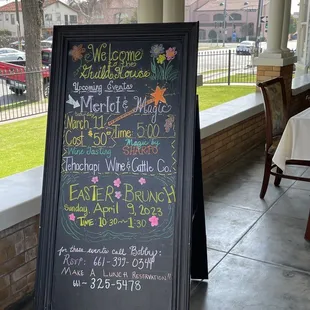 Welcome
to the
Guild House
Upcoming Events
Merlot & Magic
March 11
Cost $50 Time 5:00
Wine Tasting Magic by
SHARPO
Tehachapi Wine & Cattle Co.
EASTER BRUNCH
Sunday April 9, 2023
TIME 10:30 - 1:30
for these events call Bobby:
RSVP: 661-399-0344
MAKE A LUNCH RESERVATION!!
661-325-5478